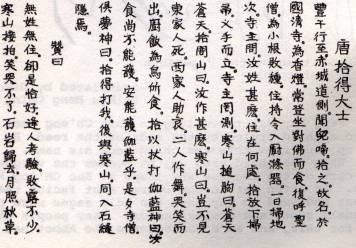 唐拾得大士
豐干行至赤城道側聞兒啼。拾之。故名。於
國清寺。為香燈。常登坐對佛而食。復呼聖
僧為小根敗種。住持令入廚滌器。一日掃地
次。寺主問。汝姓甚麼。住在何處。拾放下掃
帚。叉手而立。寺主罔測。寒山搥胸曰。蒼天
蒼天。拾問山曰。汝作甚麼。寒山曰。豈不見
東家人死。西家人助哀。二人作舞。哭笑而
出。廚飯為烏所食。拾以杖打伽藍神曰。汝
食尚不能護。安能護伽藍乎。是夕寺僧
俱夢神曰。拾得打我。後與寒山。同入石縫
隱焉。
贊曰
無姓無住。卻是恰好。逢人考驗。敗露不少。
寒山拍。笑哭不了。石岩歸去。月照秋草